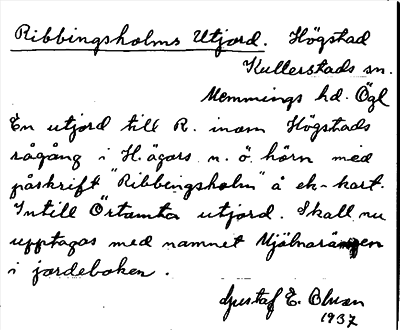 Ribbingsholms Utjord. Högstad
Kullerstads sn.
Memmings hd. Ögl
En utjord till R. inom Högstads
rågång i H. ägors n. ö. hörn med
påskrift "Ribbingsholm" å ek-kart.
Intill Örtomta utjord. Skall nu
upptagas med namnet Mjölnarängen
i jordeboken.
Gustaf E.
1937